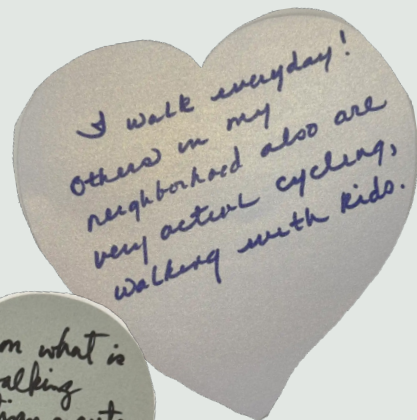 I walk everyday!
Others in my
neighborhood also are
very active cycling,
walking with kids.
on what is
walking